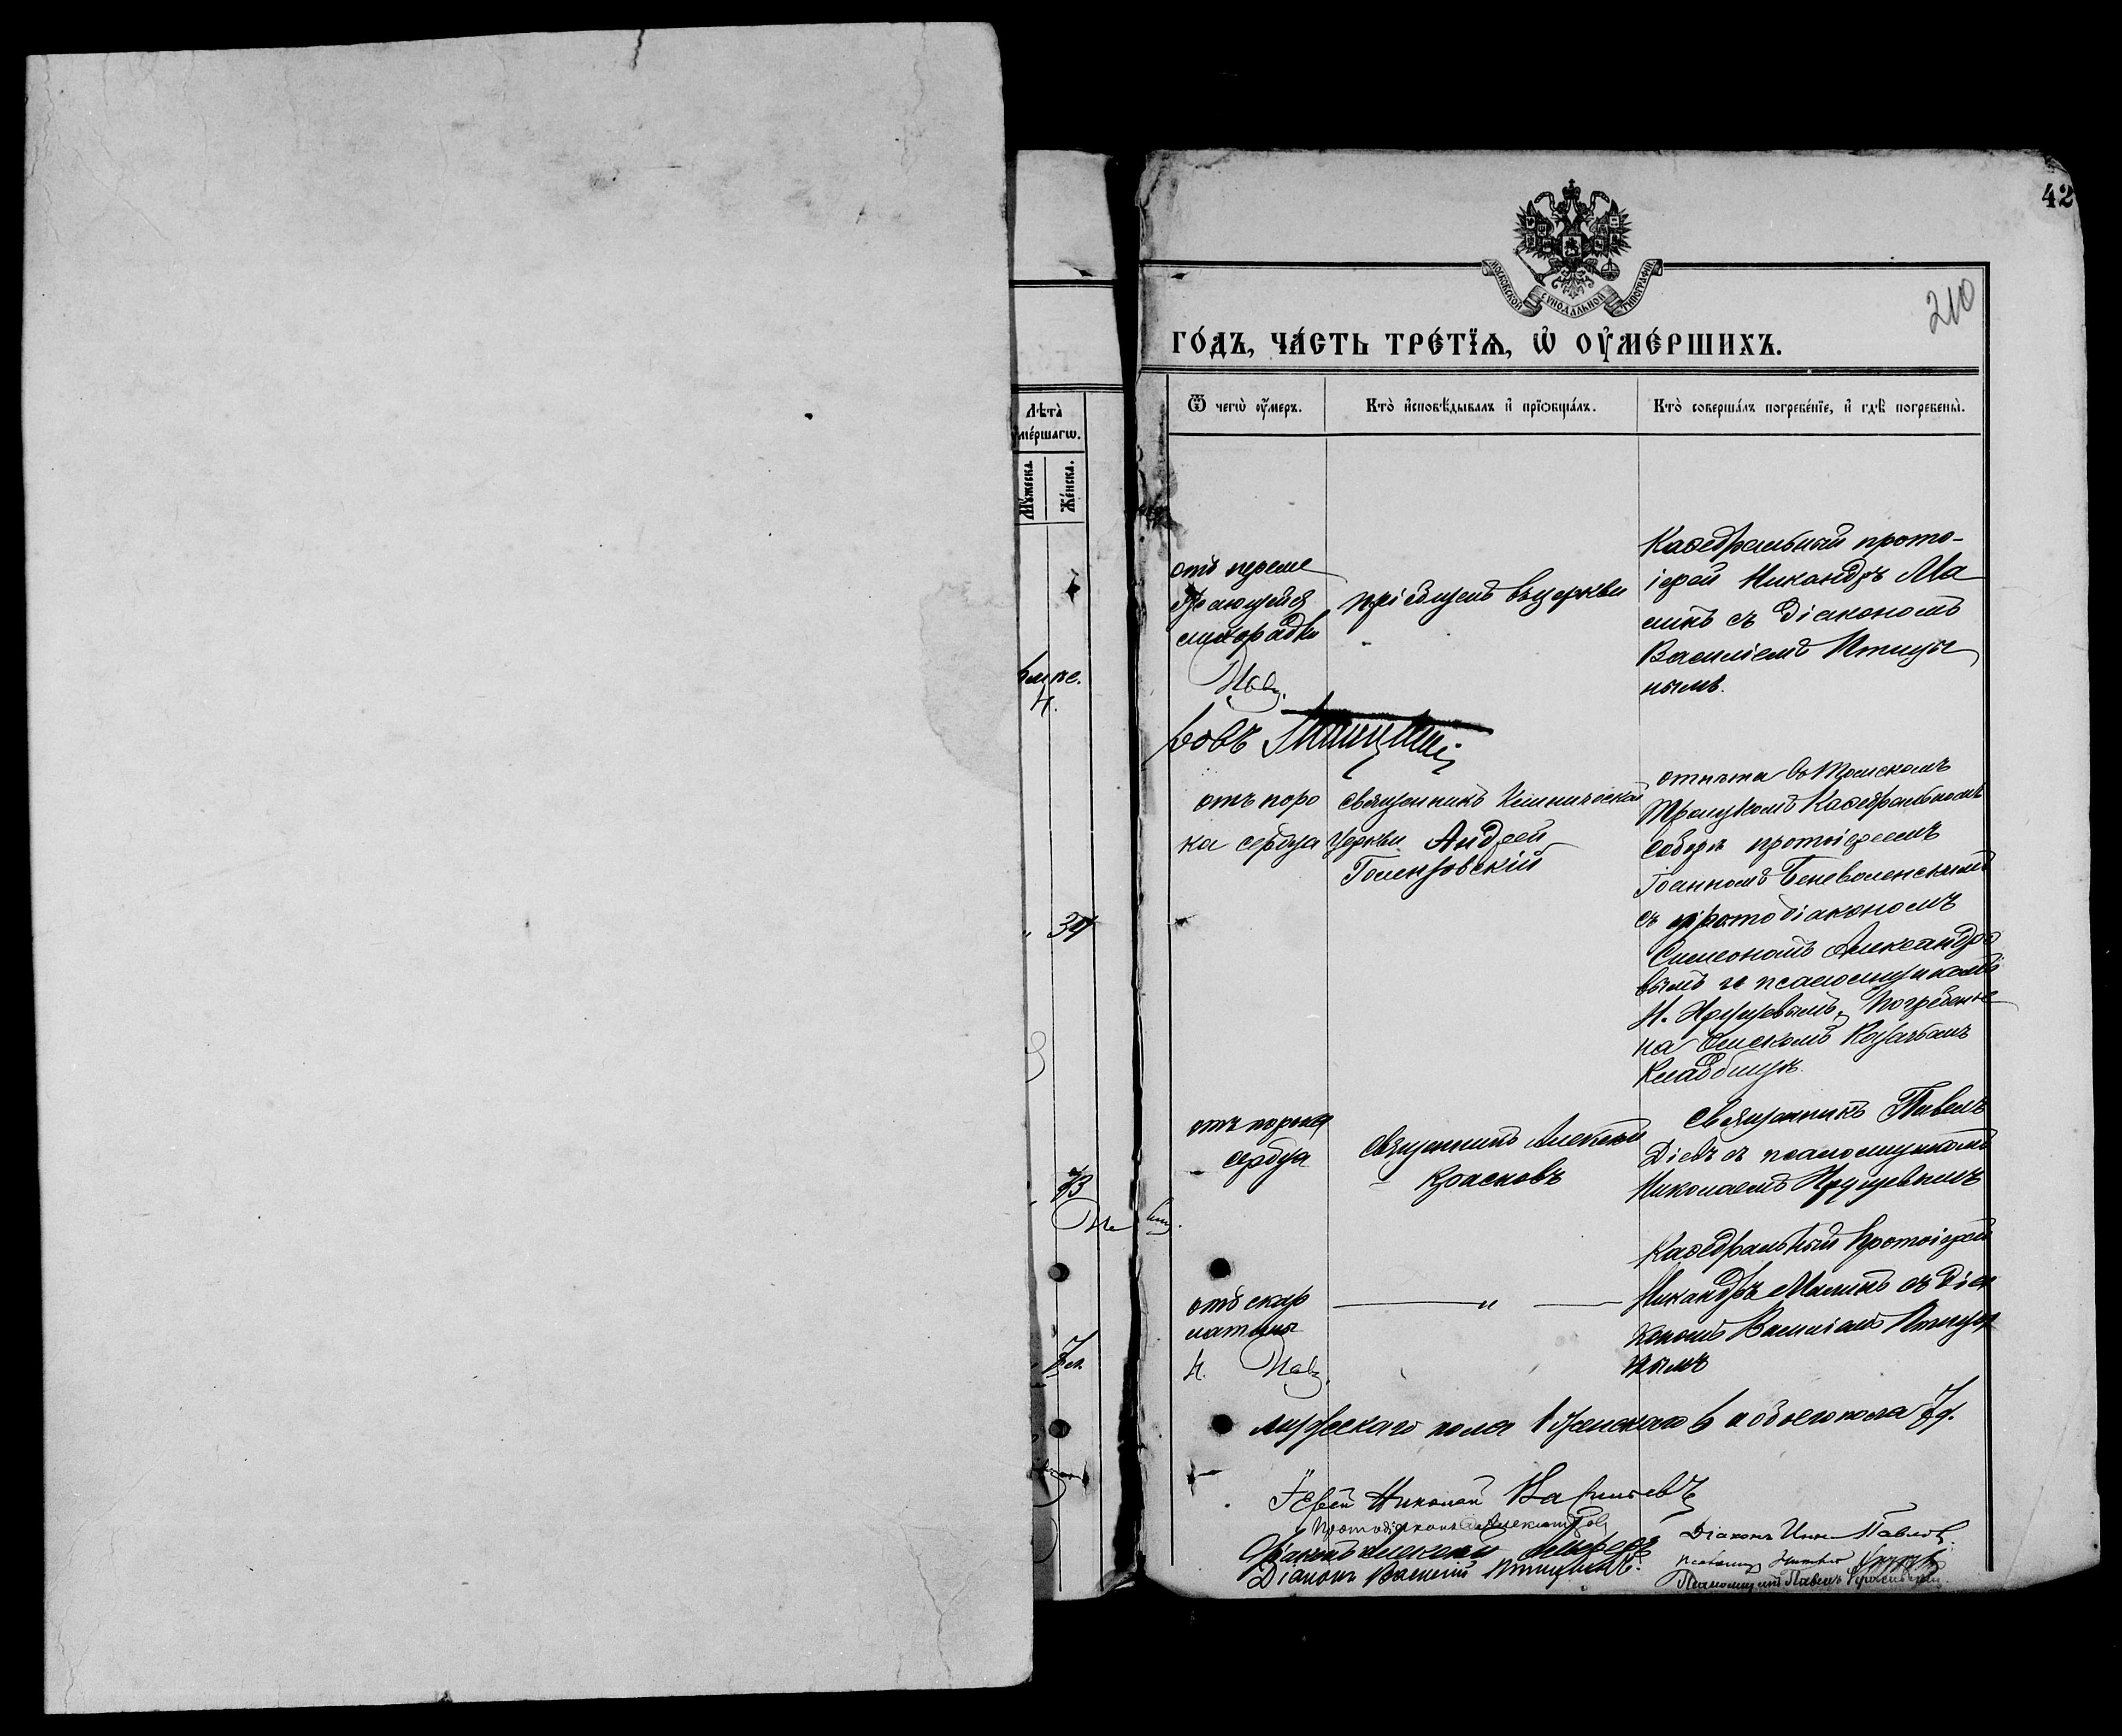 42
210
МОСКОВСКОЙ СѴНОДАЛЬНОЙ ТИПОГРАФІИ
ГО́ДЪ, ЧА́СТЬ ТРЕ́ТЇѦ, Ѡ҆ ОУ҆МЕ́РШИХЪ.
Лѣта̀
оу҆ме́ршагѡ.
Мꙋ́жеска.
Же́нска.
Ѿ чегѡ̀ оу҆́меръ.
Кто̀ и҆сповѣ́дывалъ и҆ прїѡбща́лъ.
Кто̀ соверша́лъ погребе́нїе, и҆ гдѣ̀ погребены̀.
отъ переме
жающейся
лихорадки
пріобщенъ въ церкви
Кафедральный прото-
іерей Никандръ Ма
линъ съ діакономъ
Василіемъ Птицы
нымъ.
отъ поро
ка сердца
священникъ Клинической
церкви Андрей
отпѣта въ Томскомъ
Троицкомъ Кафедральномъ
соборѣ протоіереемъ
Іоанномъ Беневоленскимъ
съ протодіакономъ
Симеономъ Александро
вымъ и псаломщикомъ
Н. Погребена
на Омскомъ Казачьемъ
Кладбищѣ.
34
отъ порока
сердца
Священникъ Алексѣй
Красновъ
Священникъ Павелъ
Діевъ съ псаломщикомъ
Николаемъ
73
отъ скар
латины
"
Кафедральный Протоіерей
Никандръ Малинъ съ діа
кономъ Василіемъ Птицы
нымъ
7
мужескаго пола 1 женскаго 6 и обоего пола 7 д.
Іерей Николай Васильевъ
Протодіаконъ Александровъ
Діаконъ Алексѣй
Діаконъ Василій Птицынъ.
Діаконъ Павловъ
Псаломщикъ
Псаломщикъ Павелъ